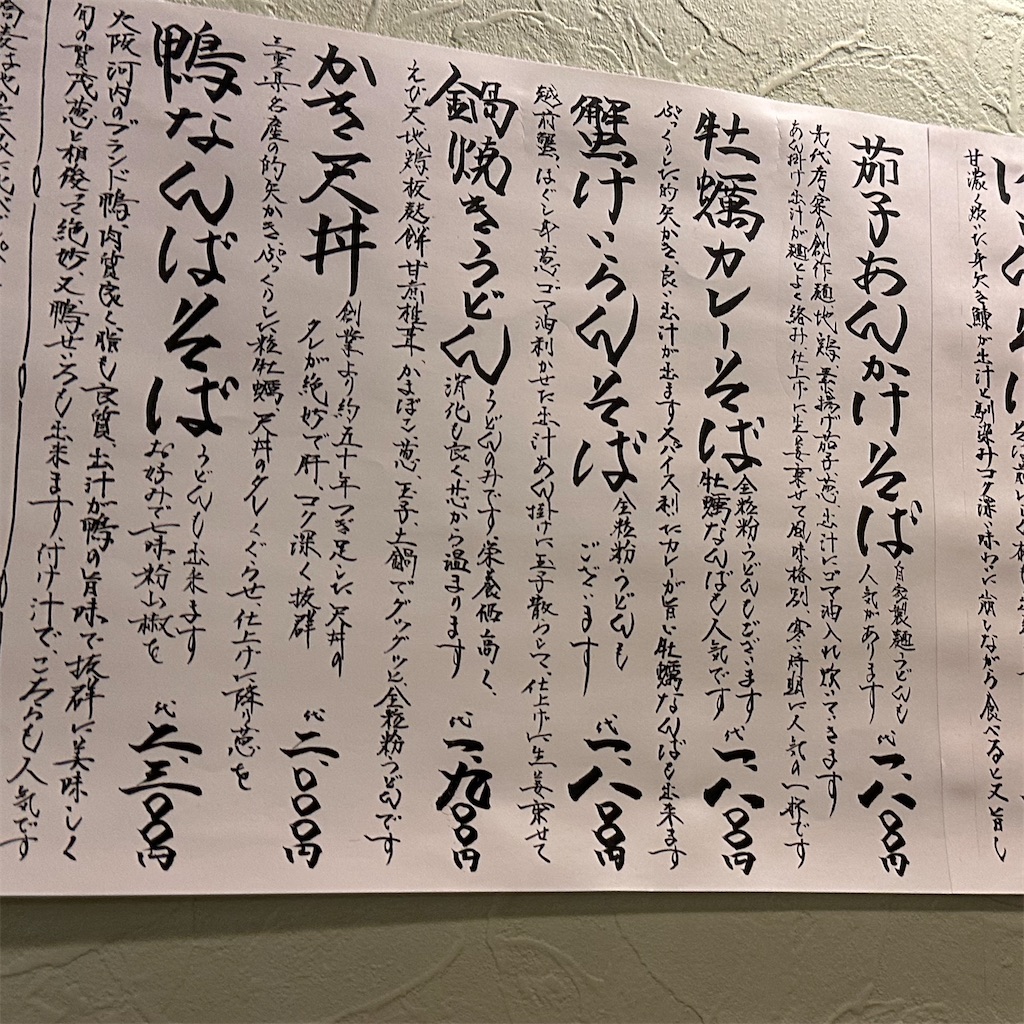 甘濃く炊いた身欠き鰊が出汁と馴染みコク深い味わいに崩しながら食べると又旨し
茄子あんかけそば
自家製麺うどんも
人気があります
代一、八〇〇円
先代考案の創作麺、地鶏、素揚げ茄子、葱、出汁にゴマ油入れ炊いてきます
あん掛け出汁が麺とよく絡み、仕上げに生姜乗せて風味格別、寒い時期に人気の一杯です
牡蠣カレーそば
全粒粉うどんもございます
牡蠣なんばも人気です
代一、八〇〇円
ぷっくりした的矢かき、良い出汁が出ますスパイス利いたカレーが旨い牡蠣なんばも出来ます
蟹けいらんそば
全粒粉うどんも
ございます
代一、八〇〇円
越前蟹、ほぐし身、葱、ゴマ油利かせた出汁あん掛けに玉子散らして、仕上げに生姜乗せて
鍋焼きうどん
うどんのみです、栄養価高く、
消化も良く芯から温まります
代一、九〇〇円
えび天、地鶏、板麩、餅、甘煎椎茸、かまぼこ、葱、玉子、土鍋でグツグツと全粒粉うどんです
かき天丼
創業より約五十年つぎ足した天丼の
タレが絶妙で肝、コク深く抜群
代二、〇〇〇円
三重県名産の的矢かき、ぷっくりした粒牡蠣、天丼のタレくぐらせ、仕上げに降り葱を
鴨なんばそば
うどんも出来ます
お好みで七味、粉山椒を
代二、三〇〇円
大阪河内のブランド鴨、肉質良く、脂も良質、出汁が鴨の旨味で抜群に美味しく
旬の賀茂葱と相俟って絶妙、又、鴨せいろも出来ます、付け汁で、こちらも人気です